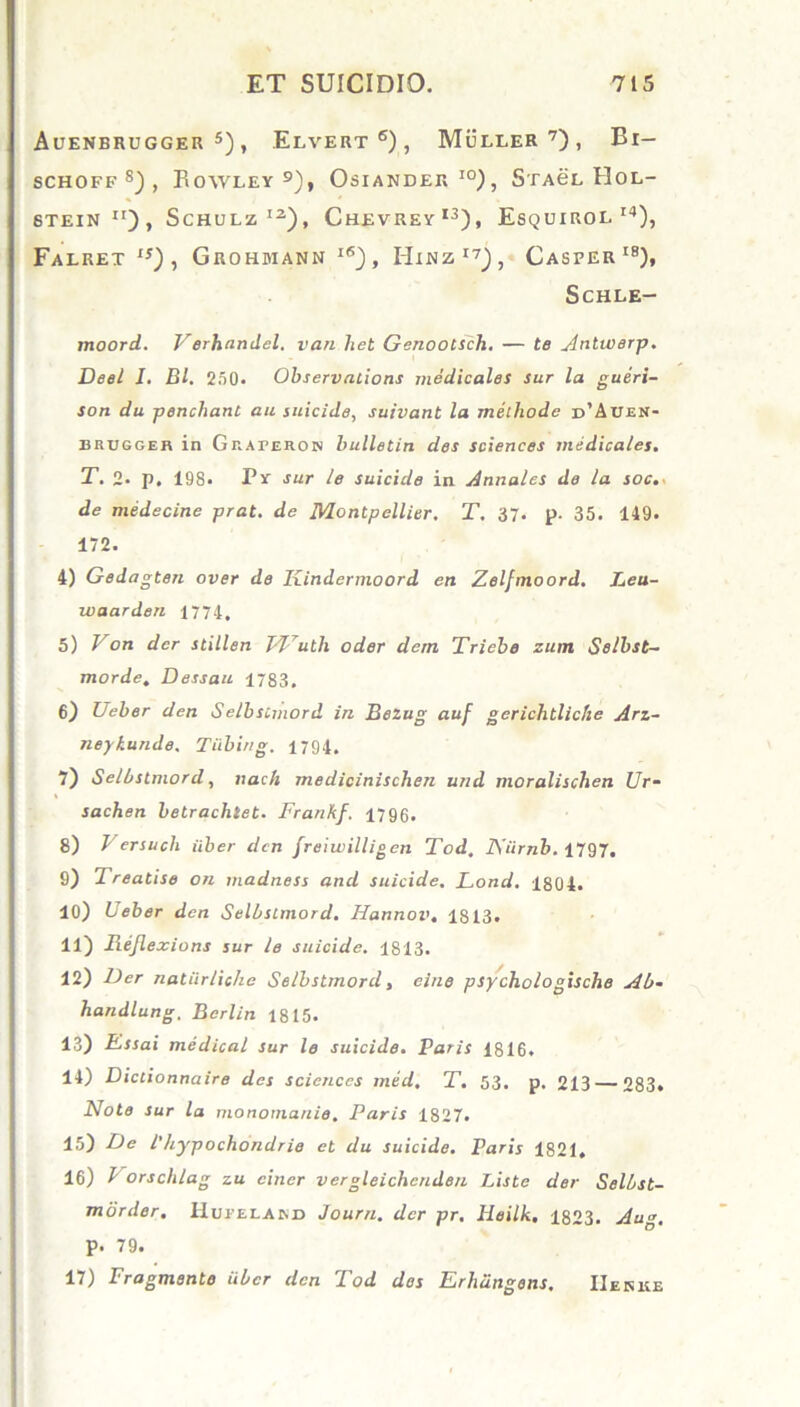 ET SUICIDIO. 715
AUENBRUGGER ⁵), ELVERT ⁶), MÜLLER ⁷), BI-
SCHOFF ⁸), ROWLEY ⁹), OSIANDER ¹⁰), STAËL HOL-
STEIN ¹¹), SCHULZ ¹²), CHEVREY ¹³), ESQUIROL ¹⁴),
FALRET ¹⁵), GROHMANN ¹⁶), HINZ ¹⁷), CASPER ¹⁸),
SCHLE-
moord. Verhandel. van het Genootsch. — te Antwerp.
Deel I. Bl. 250. Observations médicales sur la guéri-
son du penchant au suicide, suivant la méthode D'AUEN-
BRUGGER in GRAPERON bulletin des sciences médicales.
T. 2. p. 198. PY sur le suicide in Annales de la soc.
de médecine prat. de Montpellier. T. 37. p. 35. 149.
172.
4) Gedagten over de Kindermoord en Zelfmoord. Leu-
waarden 1774.
5) Von der stillen Wuth oder dem Triebe zum Selbst-
morde. Dessau 1783.
6) Ueber den Selbstmord in Bezug auf gerichtliche Arz-
neykunde. Tübing. 1794.
7) Selbstmord, nach medicinischen und moralischen Ur-
sachen betrachtet. Frankf. 1796.
8) Versuch über den freiwilligen Tod. Nürnb. 1797.
9) Treatise on madness and suicide. Lond. 1804.
10) Ueber den Selbstmord. Hannov. 1813.
11) Réflexions sur le suicide. 1813.
12) Der natürliche Selbstmord, eine psychologische Ab-
handlung. Berlin 1815.
13) Essai médical sur le suicide. Paris 1816.
14) Dictionnaire des sciences méd. T. 53. p. 213—283.
Note sur la monomanie. Paris 1827.
15) De l'hypochondrie et du suicide. Paris 1821.
16) Vorschlag zu einer vergleichenden Liste der Selbst-
mörder. HUFELAND Journ. der pr. Heilk. 1823. Aug.
p. 79.
17) Fragmente über den Tod des Erhängens. HENKE